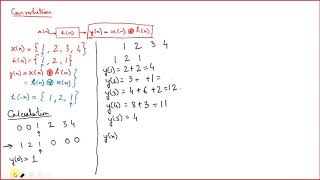 Convolution
x(n) → h(n) → y(n) = x(n) ⊛ h(n)
x(n) = { 1, 2, 3, 4 }
h(n) = { 1, 2, 1 }
y(n) = x(n) ⊛ h(n)
h(-n) = { 1, 2, 1 }
Calculation
0 0 1 2 3 4
1 2 1 0 0 0
y(0) = 1
1 2 3 4
1 2 1
y(1) = 2+2 = 4
y(2) = 3 + +1 =
y(3) = 4 + 6 + 2 = 12.
y(4) = 8 + 3 = 11
y(5) = 4
y(n)